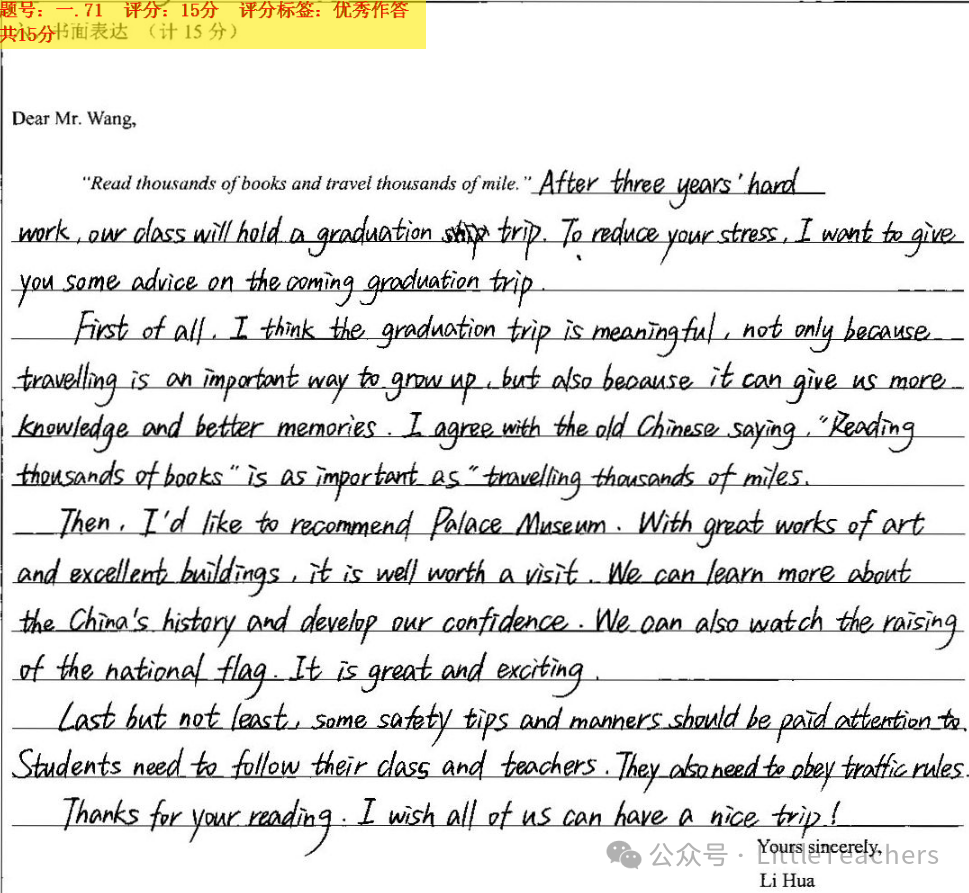 题号：一.71 评分：15分 评分标签：优秀作答
共15分 书面表达 （计 15 分）
Dear Mr. Wang,
"Read thousands of books and travel thousands of mile." After three years' hard
work, our class will hold a graduation trip. To reduce your stress, I want to give
you some advice on the coming graduation trip.
First of all, I think the graduation trip is meaningful, not only because
travelling is an important way to grow up, but also because it can give us more
knowledge and better memories. I agree with the old Chinese saying, "Reading
thousands of books" is as important as "travelling thousands of miles.
Then, I'd like to recommend Palace Museum. With great works of art
and excellent buildings, it is well worth a visit. We can learn more about
the China's history and develop our confidence. We can also watch the raising
of the national flag. It is great and exciting.
Last but not least, some safety tips and manners should be paid attention to.
Students need to follow their class and teachers. They also need to obey traffic rules.
Thanks for your reading. I wish all of us can have a nice trip!
Yours sincerely,
公众号 · LittleTeachers
Li Hua